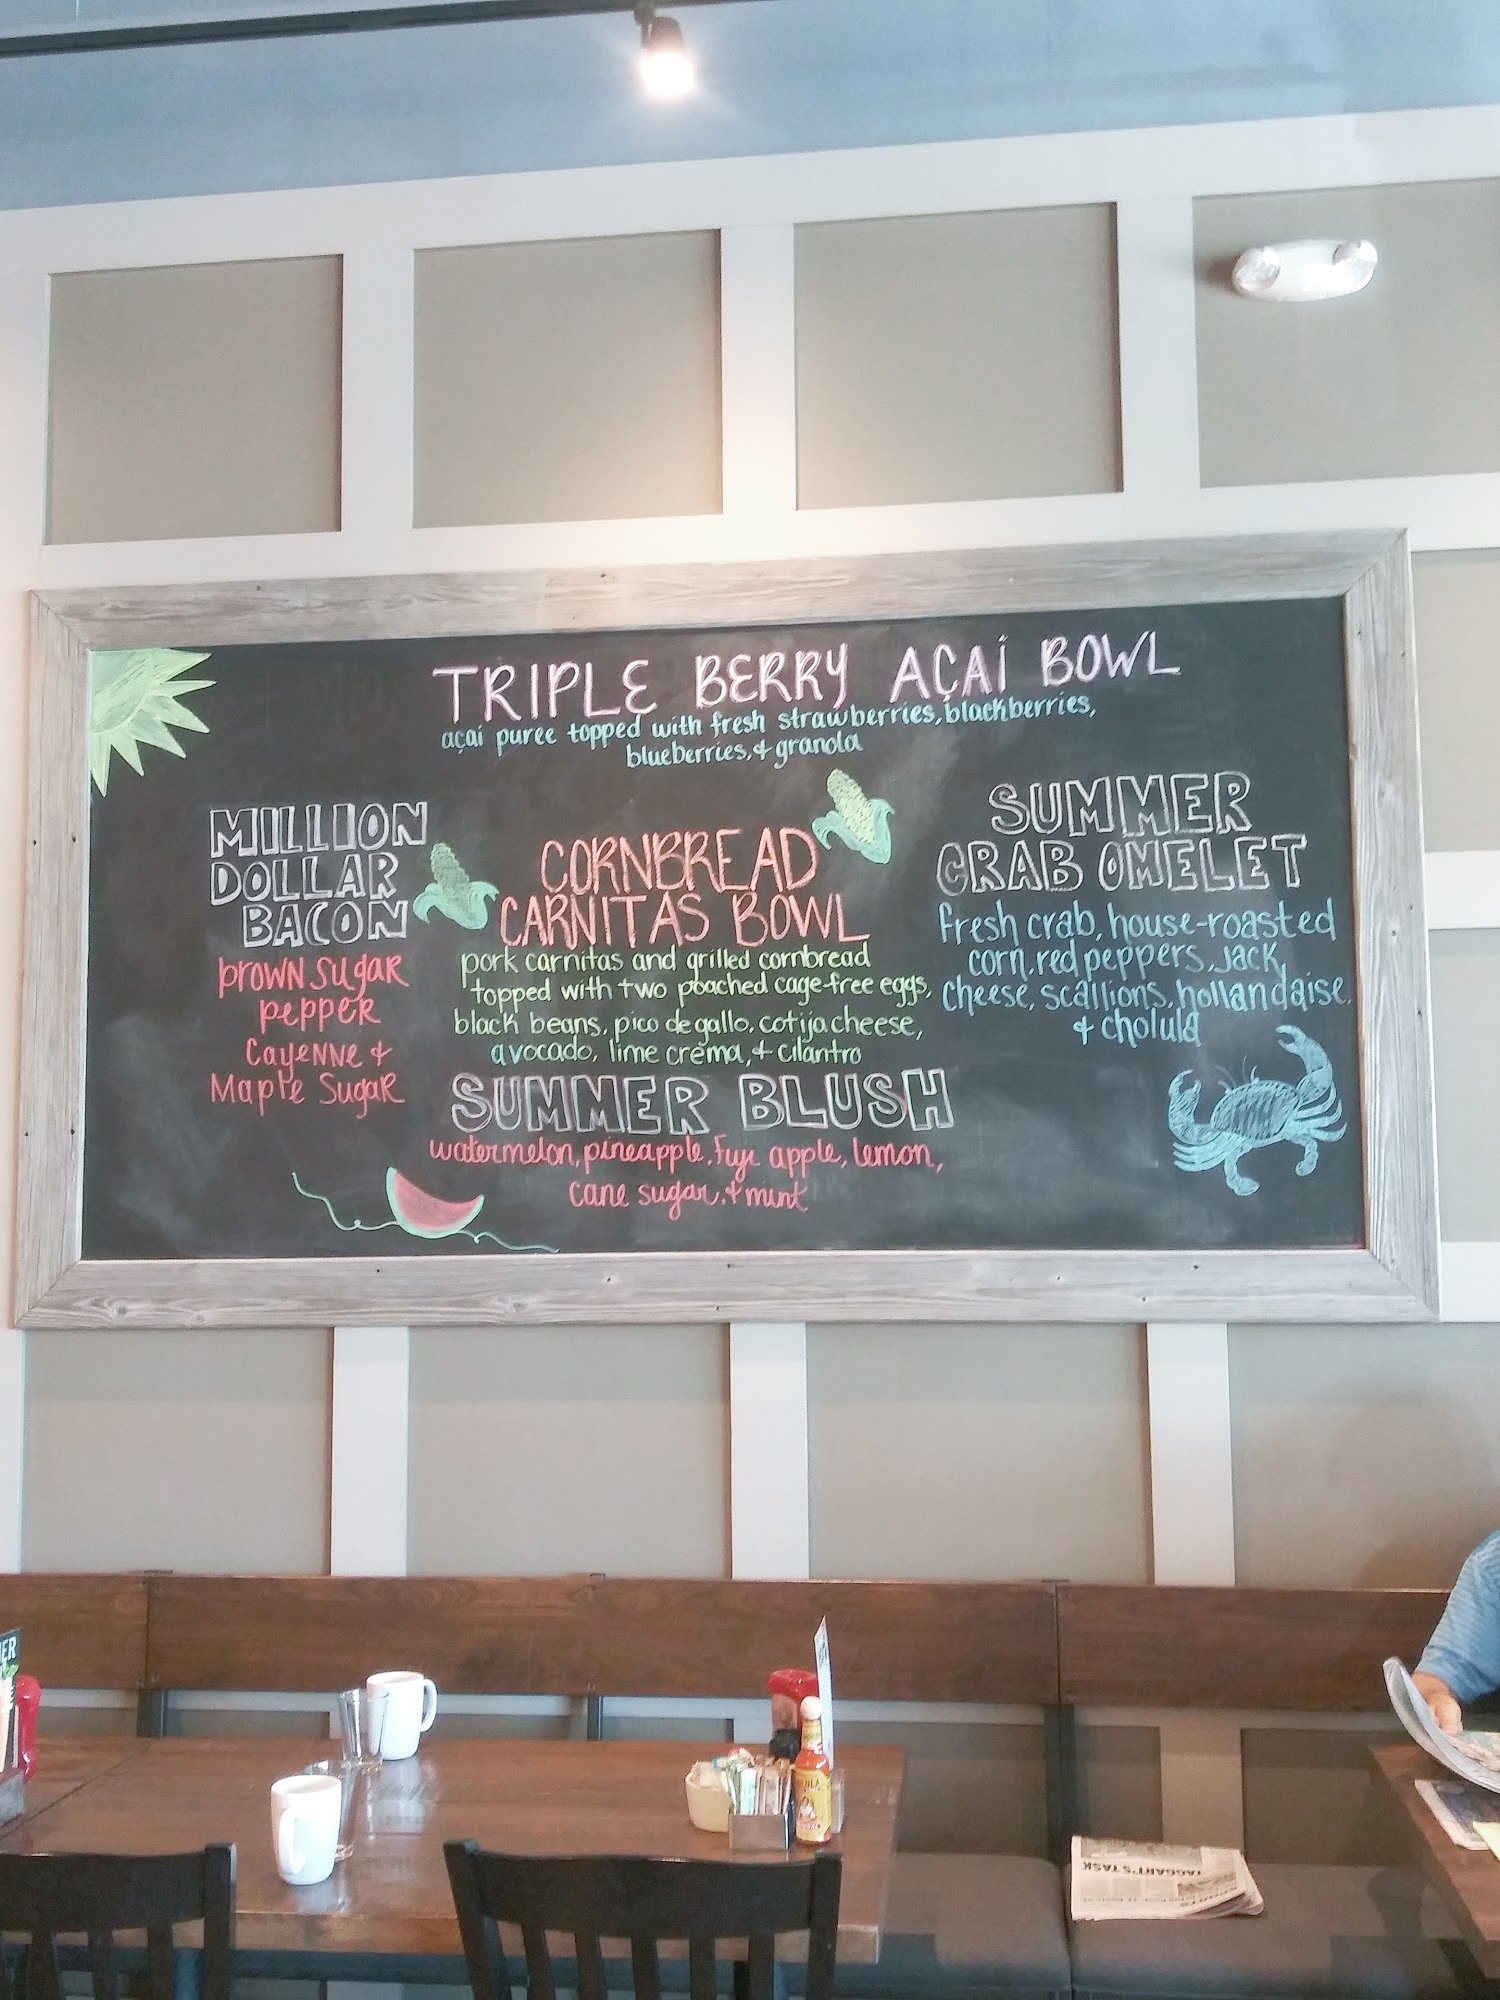 TRIPLE BERRY AÇAÍ BOWL
açai puree topped with fresh strawberries, blackberries,
blueberries, & granola
MILLION
DOLLAR
BACON
brown sugar
pepper
Cayenne &
Maple Sugar
CORNBREAD
CARNITAS BOWL
pork carnitas and grilled cornbread
topped with two poached cage-free eggs,
black beans, pico de gallo, cotija cheese,
avocado, lime crèma, & cilantro
SUMMER
CRAB OMELET
fresh crab, house-roasted
corn, red peppers, Jack
cheese, scallions, hollandaise,
& cholula
SUMMER BLUSH
watermelon, pineapple, Fuji apple, lemon,
cane sugar, & mint
TAGGART'S TASK